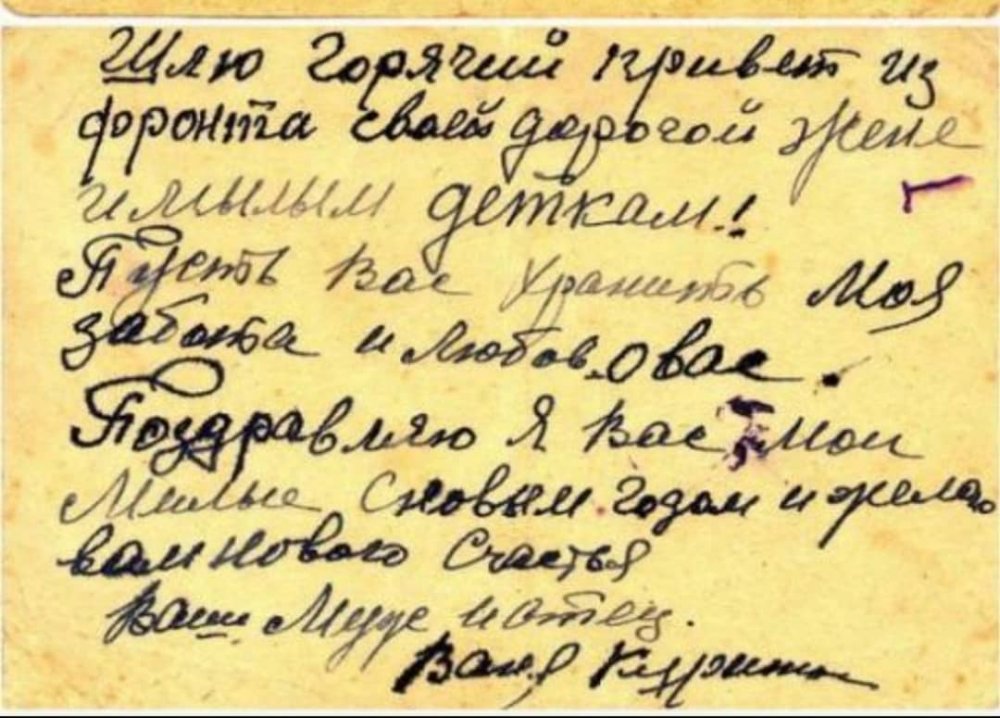 Шлю Горячий привет из
фронта своей дорогой жене
и милым деткам!
Пусть Вас Хранить Моя
забота и Любов. о вас.
Поздравляю Я Вас, Мои
Милые с новым годом и желаю
вам нового Счастья
Ваш Муж и отец.
Ваня